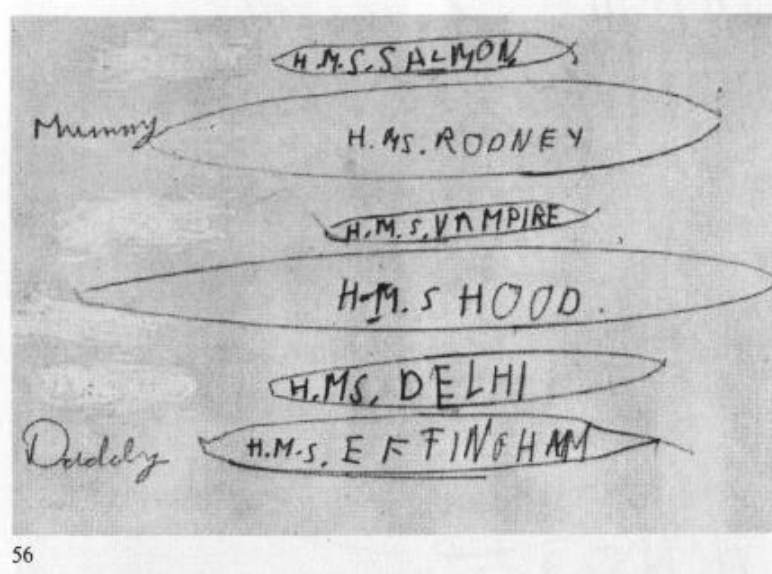 H.M.S. SALMON
Mummy
H.MS. RODNEY
H.M.S. VAMPIRE
H-M. S HOOD.
H.MS. DELHI
Daddy
H.M.S. EFFINGHAM
56